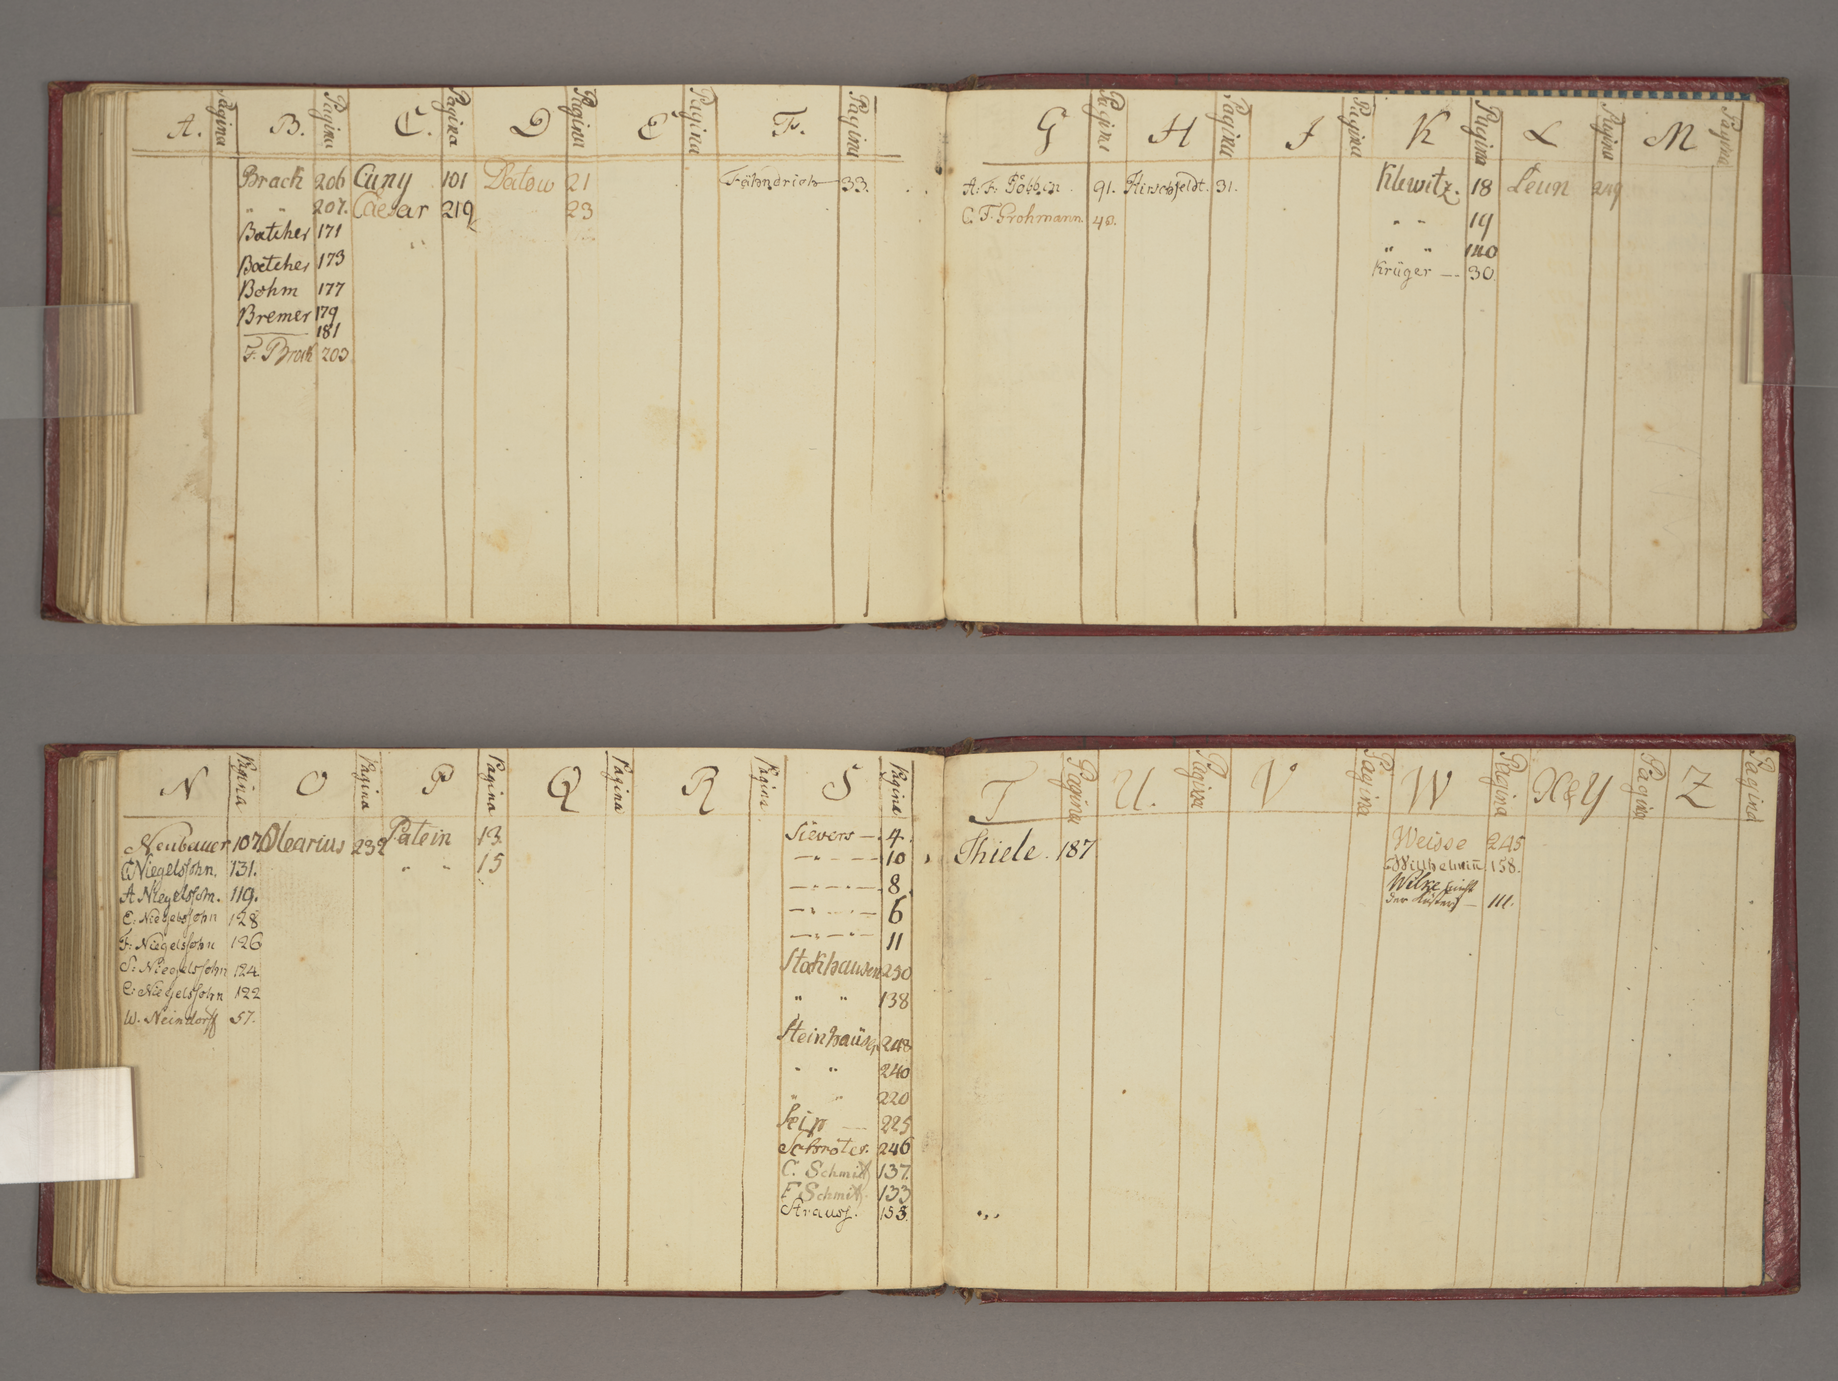 A. Pagina B. Pagina C. Pagina D Pagina E Pagina F. Pagina
Brack 206 Cuny 101 Datow 21 Fähndrich 33.
" " 207. Caesar 219 23
Boetcher 171
Boetcher 173
Bohm 177
Bremer 179
181
F. Brack 203
G Pagina H Pagina I Pagina K Pagina L Pagina M Pagina
A. F. Göbbin 91. Hirschfeldt. 31. Klewitz. 18 Leun 249
C. F. Grohmann 40. " " 19
" " 140
Krüger — 30
N Pagina O Pagina P Pagina Q Pagina R Pagina S Pagina
Neubauer 107. Olearius 232 Patein 13. Sievers — 4.
C Niegelssohn. 131. " " 15 — " — 10
A Niegelssohn. 119. — " — 8
C: Niegelssohn 128 — " — 6
F: Niegelssohn 126 — " — 11
S: Niegelssohn 124. Stockhausen 230
C: Niegelssohn 122 " " 138
W. Neindorff 57.
Steinhaüser 248
" " 240
" " 220
Seip — 225
Schröter. 246
C. Schmidt 137.
F Schmidt 133
Strauss. 153.
T Pagina U. Pagina V Pagina W Pagina X & Y Pagina Z Pagina
Thiele. 187 Weisse 245
Willhelmine 158.
Wilke nicht
der Küster — 111.